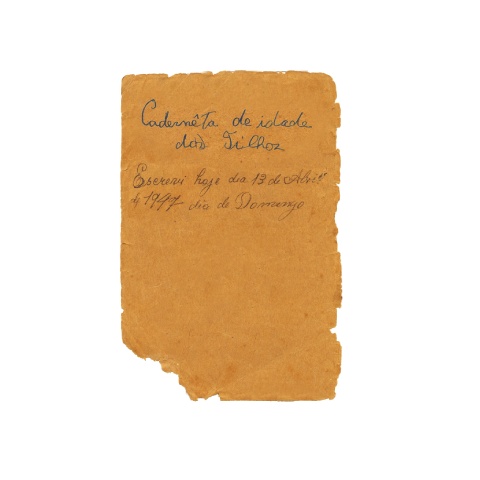 Cadernêta de idade
dos Filhos
Escrevi hoje dia 13 de Abril
de 1947 dia de Domingo